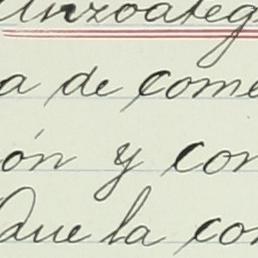 Anzoateg
a de come
ón y con
Que la con